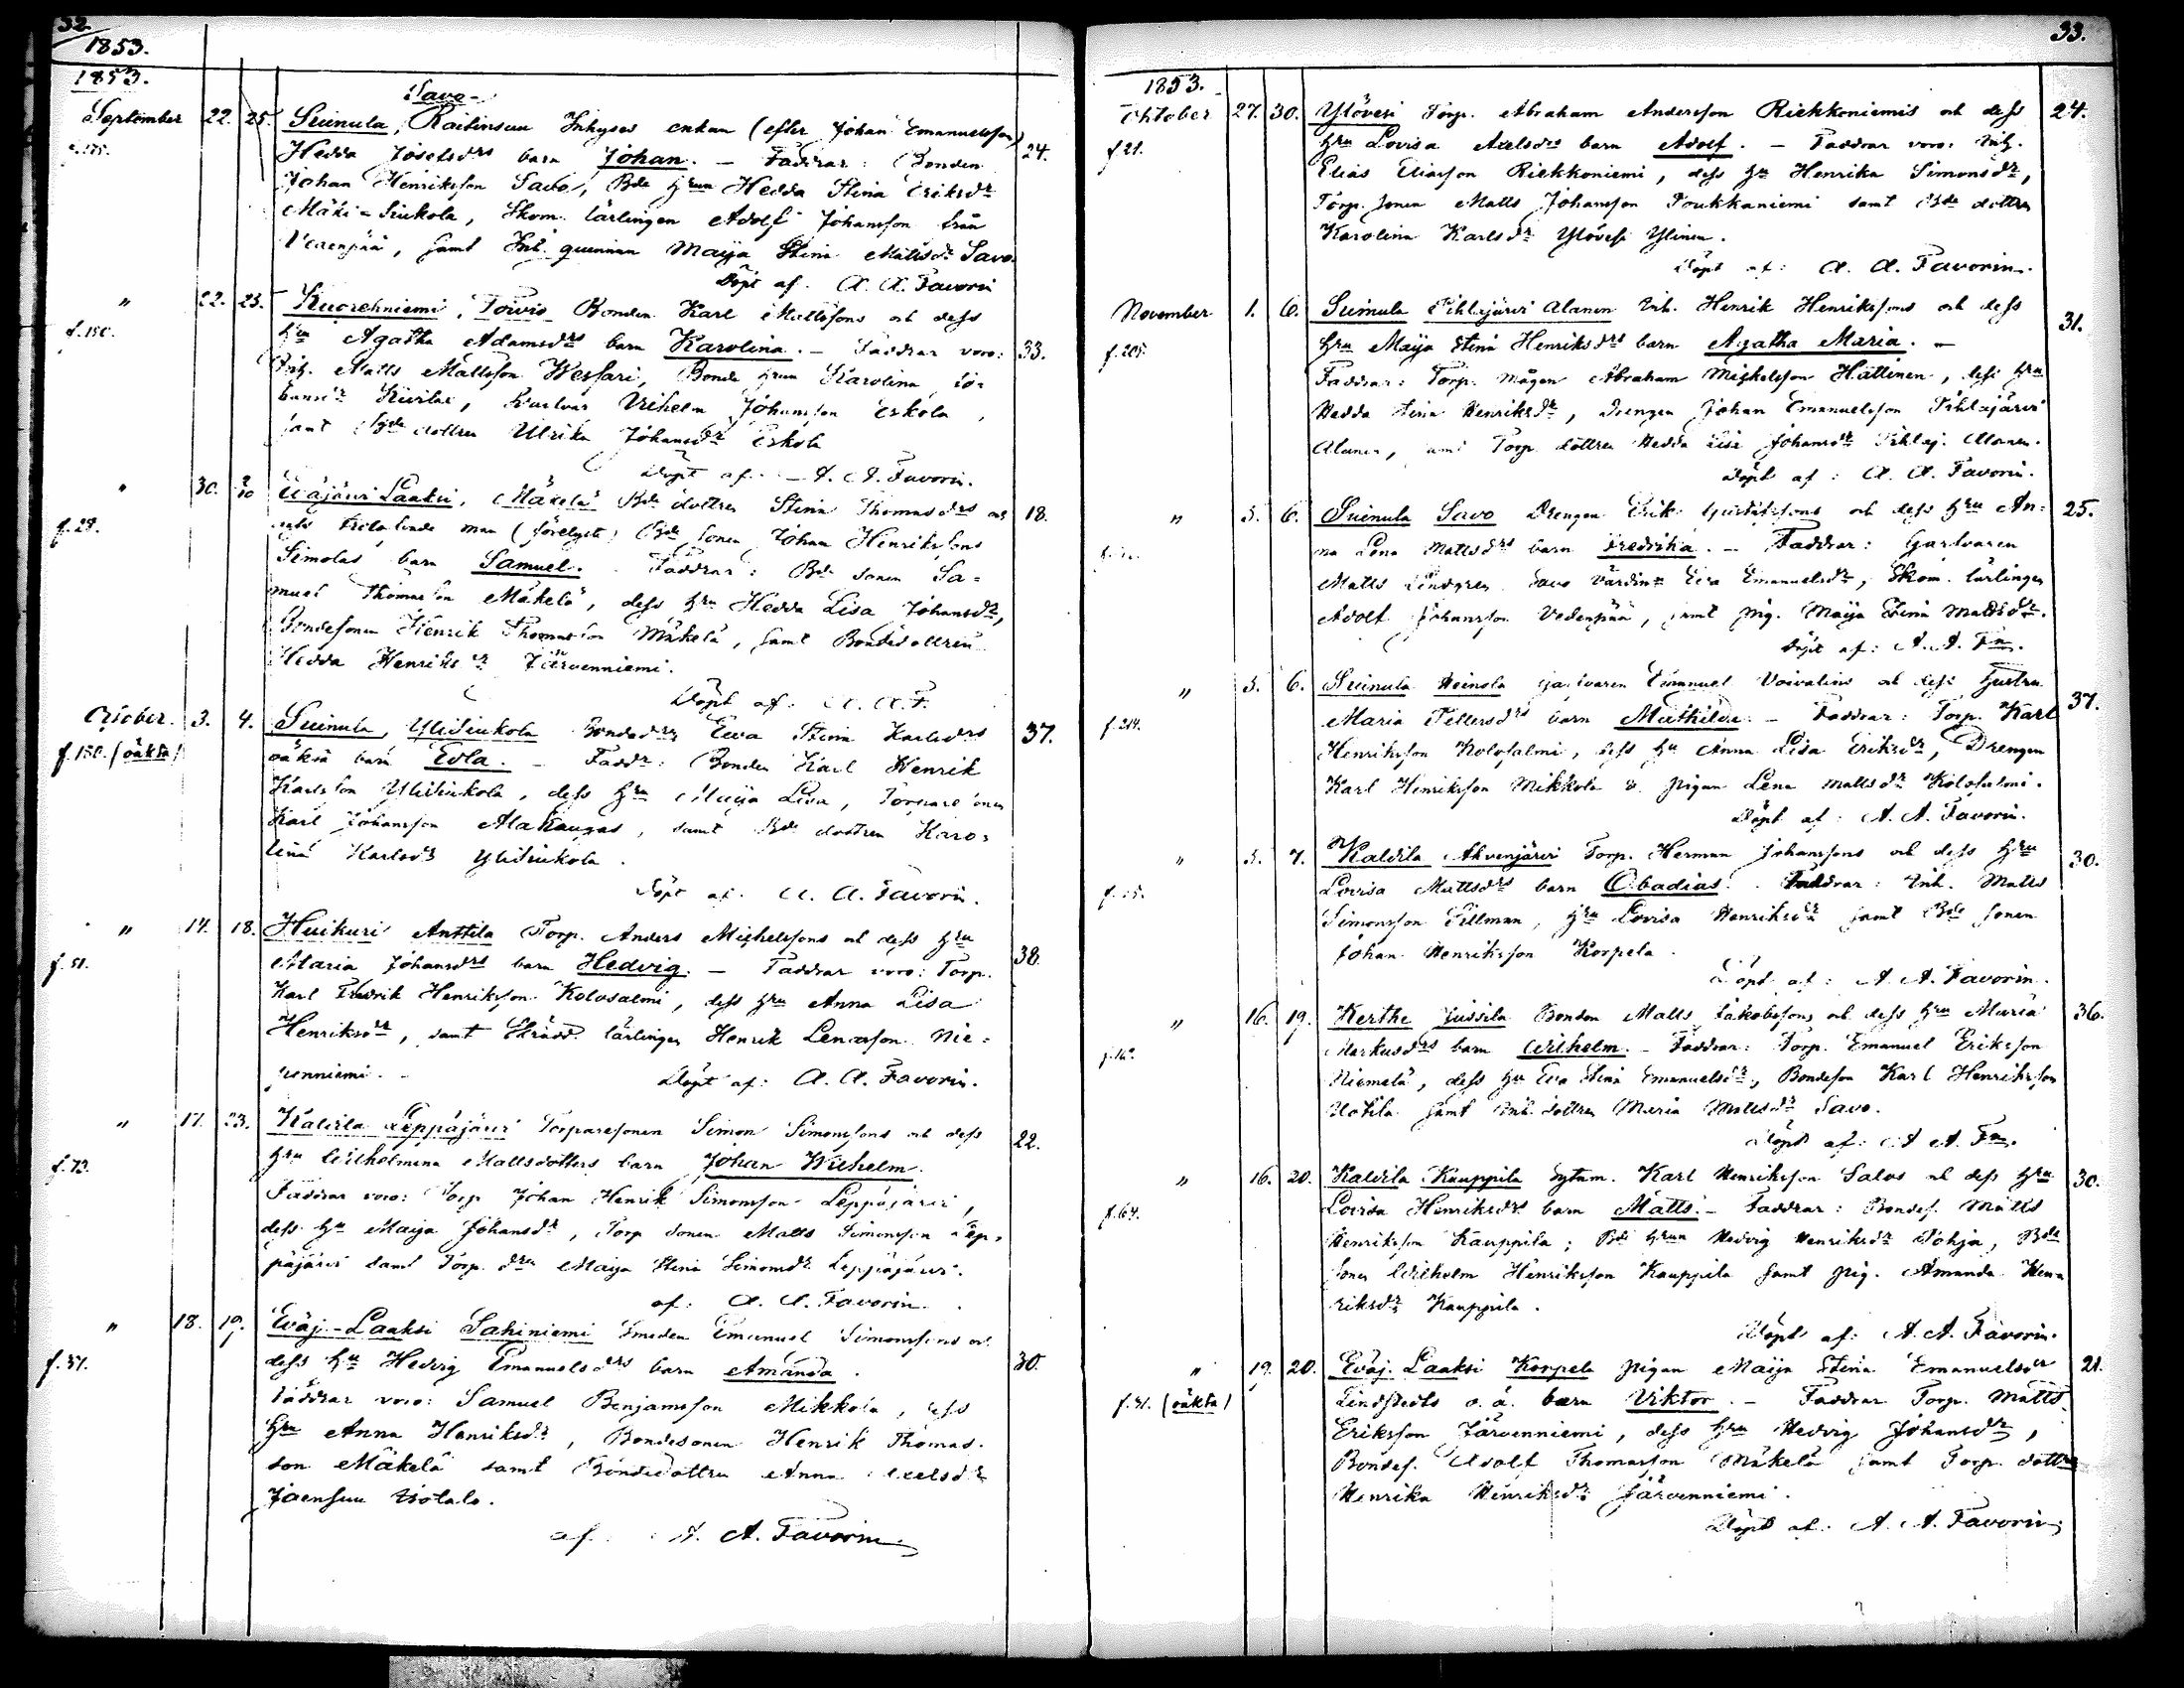 32.
1853.
1853.
Savo-
September 22. 25. Suinula, Raitinsuu Inhyses enkan (efter Johan Emanuelsson)
Hedda Josefsdrs barn Johan. — Faddrar: Bonden 24.
Johan Henriksson Savo, Bde hrun Hedda Stina Eriksdr
Mäki-Siukola, Skom. lärlingen Adolf Johansson från
Vedenpää, samt Inh. quinnan Maija Stina Mattsdr Savo.
Döpt af. A. A. Favorin
" 22. 23. Kuorehniemi, Toivio Bonden Karl Mattssons och dess
f. 150.
hru Agatha Adamsdrs barn Karolina. — Faddrar voro: 33.
Inh. Matts Mattsson Wessari, Bonde hrun Karolina Jo-
hansdr, Wilhelm Johansson Eskola,
samt Bde dottren Ulrika Johansdr Eskola
Döpt af. — A. A. Favorin.
" 30. 2/10 Eväjärvi Laaksi, Mäkelä Bde dottren Stina Thomasdrs och 18.
f. 29.
man (förelupte) Bde sonen Johan Henrikssons
Simolas barn Samuel. Faddrar: Bde sonen Sa=
muel Thomasson Mäkelä, dess hru Hedda Lisa Johansdr,
Bondesonen Henrik Thomasson Mäkelä, samt Bondedottren
Hedda Henriksdr Järvenniemi.
Döpt af. A. A. F.
October. 3. 4. Suinula, YliSiukola Bondedrs Ewa Stina Karlsdrs 37.
f. 150. (oäkta)
oäkta barn Edla. — Faddr: Bonden Karl Henrik
Karlsson YliSiukola, dess hru Maija Lisa, Torpare sonen
Karl Johansson Alakaupas, samt Bde dottren Karo=
lina Karlsdr YliSiukola.
Döpt af. A. A. Favorin.
" 14. 18. Huikuri Anttila Torp. Anders Michelssons och dess hru
f. 51.
Maria Johansdrs barn Hedvig. — Faddrar voro: Torp. 38.
Karl Fredrik Henriksson Kolosalmi, dess hru Anna Lisa
Henriksdr, samt Skrädd. lärlingen Henrik Lenasson Nie=
penniemi. — Döpt af: A. A. Favorin.
" 17. 23. Kaldila Leppäjärvi Torparesonen Simon Simonssons och dess 22.
f. 73.
hru Wilhelmina Mattsdotters barn Johan Wilhelm.
Faddrar voro: Torp Johan Henrik Simonsson Leppäjärvi,
dess hru Maija Johansdr, Torp sonen Matts Simonsson Lep=
päjärvi samt Torp. drn Maija Stina Simonsdr Leppäjärvi.
af: A. A. Favorin.
" 18. 19. Eväj.-Laaksi Sahiniemi Smeden Emanuel Simonssons och
f. 37.
dess hru Hedvig Emanuelsdrs barn Amanda. 30.
Faddrar voro: Samuel Benjamsson Mikkola, dess
hru Anna Henriksdr, Bondesonen Henrik Thomas-
son Mäkelä samt Bondedottren Anna Axelsdr
Joensuu
af. A. A. Favorin
33.
1853.
Oktober 27. 30. Ylövesi Torp. Abraham Andersson Riekkoniemis och dess 24.
f. 21.
hru Lovisa Axelsdrs barn Adolf. — Faddrar voro: Inh.
Elias Eliasson Riekkoniemi, dess hr Henrika Simonsdr,
Torp. sonen Matts Johansson Poukkaniemi samt Bde dottren
Karolina Karlsdr Ylövesi Ylinen.
Döpt af: A. A. Favorin.
November 1. 6. Suinula Pihlajärvi Alanen Inh. Henrik Henrikssons och dess 31.
f. 205.
hru Maija Stina Henriksdrs barn Agatha Maria. —
Faddrar: Torp. mågen Abraham Michelsson Hättinen, dess hru
Hedda Stina Henriksdr, Drengen Johan Emanuelsson Pihlajärvi
Alanen, samt Torp dottren Hedda Lisa Johansdr Pihlaj. Alanen.
Döpt af: A. A. Favorin.
" 5. 6. Suinula Savo Drengen Erik och dess hru An= 25.
na Lena Mattsdrs barn Fredrika. — Faddrar: Garfvaren
Matts Lindgren, Savo Värdin Eva Emanuelsdr, Skom. lärlingen
Adolf Johansson Vedenpää, samt pig. Maija Stina Mattsdr.
Döpt af: A. A. Fn.
" 5. 6. Suinula Heinola garfvaren Emanuel Voivalins och dess hustru 37.
f. 214.
Maria Fellersdrs barn Mathilda. — Faddrar: Torp. Karl
Henriksson Kolosalmi, dess hr Anna Lisa Eriksdr, Drengen
Karl Henriksson Mikkola o. pigan Lena Mattsdr Kolosalmi.
Döpt af: A. A. Favorin.
" 5. 7. Kaldila Ahvenjärvi Torp. Herman Johanssons och dess hru 30.
Lovisa Mattsdrs barn Obadias. Faddrar: Inh. Matts
Simonsson Pillman, hru Lovisa Henriksdr samt Bde sonen
Johan Henriksson Korpela.
Döpt af: A. A. Favorin.
" 16. 19. Kerthe Jussila Bonden Matts Jakobssons och dess hru Maria 36.
Markusdrs barn Wilhelm. — Faddrar: Torp. Emanuel Eriksson
Niemelä, dess hr Eva Stina Emanuelsdr, Bondeson Karl Henriksson
Uotila samt Inh. dottren Maria Mattsdr Savo.
Döpt af: A. A. Fn.
" 16. 20. Kaldila Kauppila Sytnm. Karl Henriksson Salos och dess hru 30.
f. 64.
Lovisa Henriksdrs barn Matts. — Faddrar: Bondes. Matts
Henriksson Kauppila; Bde hrun Hedvig Henriksdr Pohja, Bde
sonen Wilhelm Henriksson Kauppila samt pig. Amanda Hen=
riksdr Kauppila.
Döpt af: A. A. Favorin.
" 19. 20. Eväj. Laaksi Korpela pigan Maija Stina Emanuelsdr 21.
f. 41. (oäkta)
Lindstedts o.ä. barn Viktor. — Faddrar Torp. Matts
Eriksson Järvenniemi, dess hru Hedvig Johansdr,
Bondes. Adolf Thomasson Mäkelä samt Torp. dottren
Henrika Henriksdr Järvenniemi.
Döpt af: A. A. Favorin